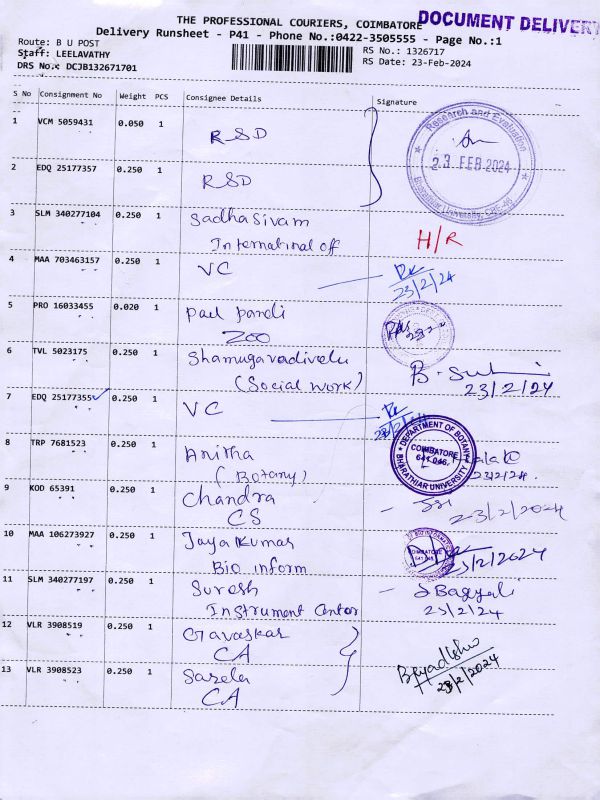 THE PROFESSIONAL COURIERS, COIMBATORE
DOCUMENT DELIVERY
Delivery Runsheet - P41 - Phone No.:0422-3505555 - Page No.:1
Route: B U POST
RS No.: 1326717
Staff: LEELAVATHY
RS Date: 23-Feb-2024
DRS No.: DCJB132671701
S No Consignment No Weight PCS Consignee Details Signature
1 VCM 5059431 0.050 1 RSD
Research and Evaluation
23 FEB 2024
Bharathiar University, CBE-46
2 EDQ 25177357 0.250 1 RSD
3 SLM 340277104 0.250 1 Sadhasivam
International off H/R
4 MAA 703463157 0.250 1 VC
23/2/24
5 PRO 16033455 0.020 1 paul pandi
ZOO
6 TVL 5023175 0.250 1 Shamugavadivelu
(Social work)
23/2/24
7 EDQ 25177355 0.250 1 VC
DEPARTMENT OF BOTANY
COIMBATORE
641 046.
BHARATHIAR UNIVERSITY
8 TRP 7681523 0.250 1 Anitha
(Botany)
23/2/24.
9 KOD 65391 0.250 1 Chandra
CS
23/2/2024
10 MAA 106273927 0.250 1 Jayakumar
Bio inform
COIMBATORE
23/2/2024
11 SLM 340277197 0.250 1 Suresh
Instrument Center
23/2/24
12 VLR 3908519 0.250 1 Gavaskar
CA
13 VLR 3908523 0.250 1 Sarela
CA
23/2/2024